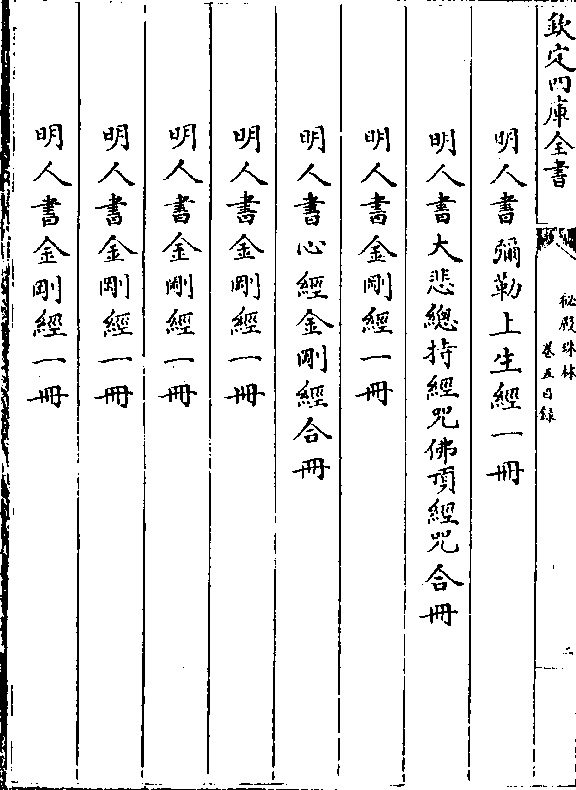 欽定四庫全書
秘殿珠林
卷五目錄
二
明人書彌勒上生經一冊
明人書大悲總持經咒佛頂經咒合冊
明人書金剛經一冊
明人書心經金剛經合冊
明人書金剛經一冊
明人書金剛經一冊
明人書金剛經一冊
明人書金剛經一冊